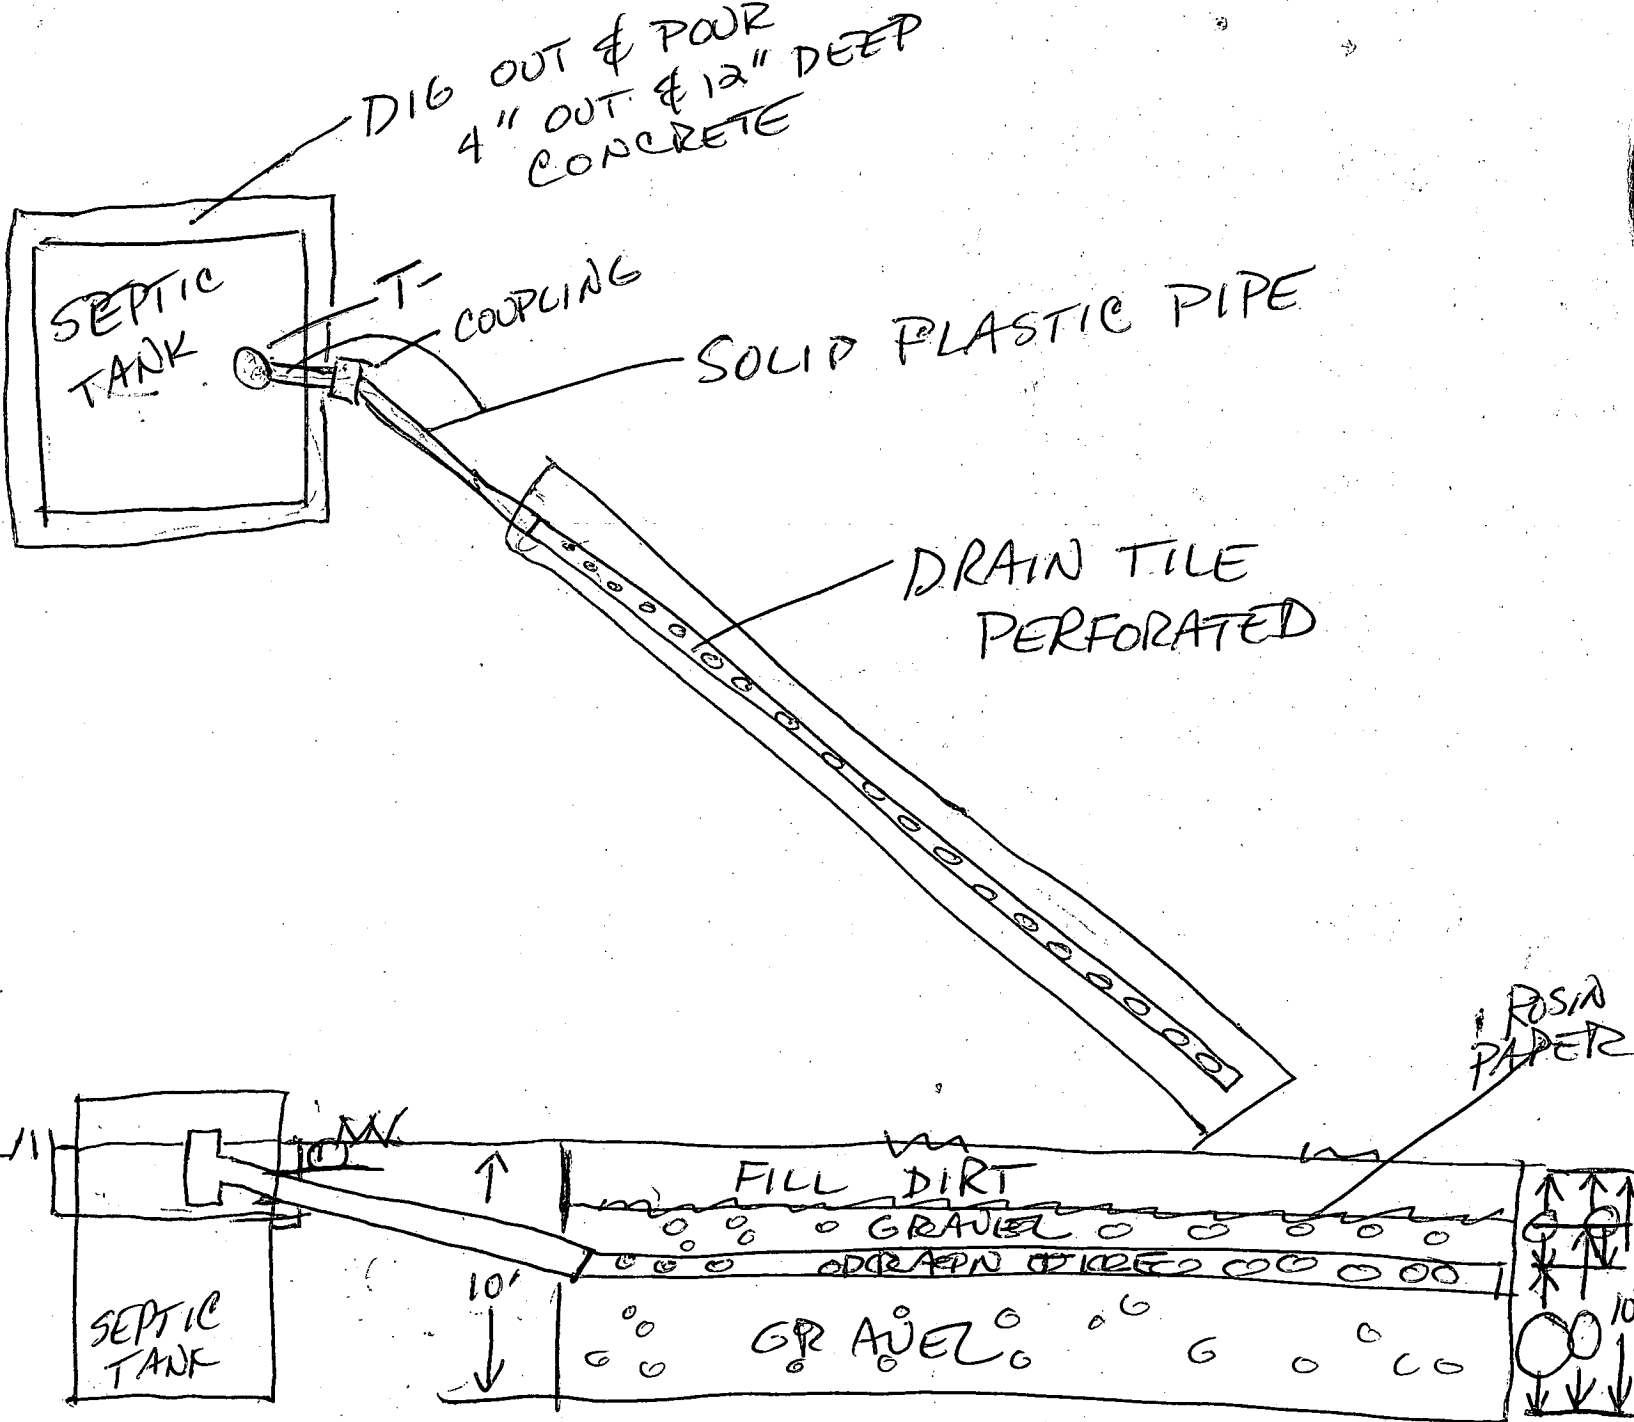 DIG OUT & POUR
4" OUT & 12" DEEP
CONCRETE
SEPTIC
TANK
T-
COUPLING
SOLID PLASTIC PIPE
DRAIN TILE
PERFORATED
ROSIN
PAPER
FILL DIRT
GRAVEL
DRAIN
10'
SEPTIC
TANK
GRAVEL
10